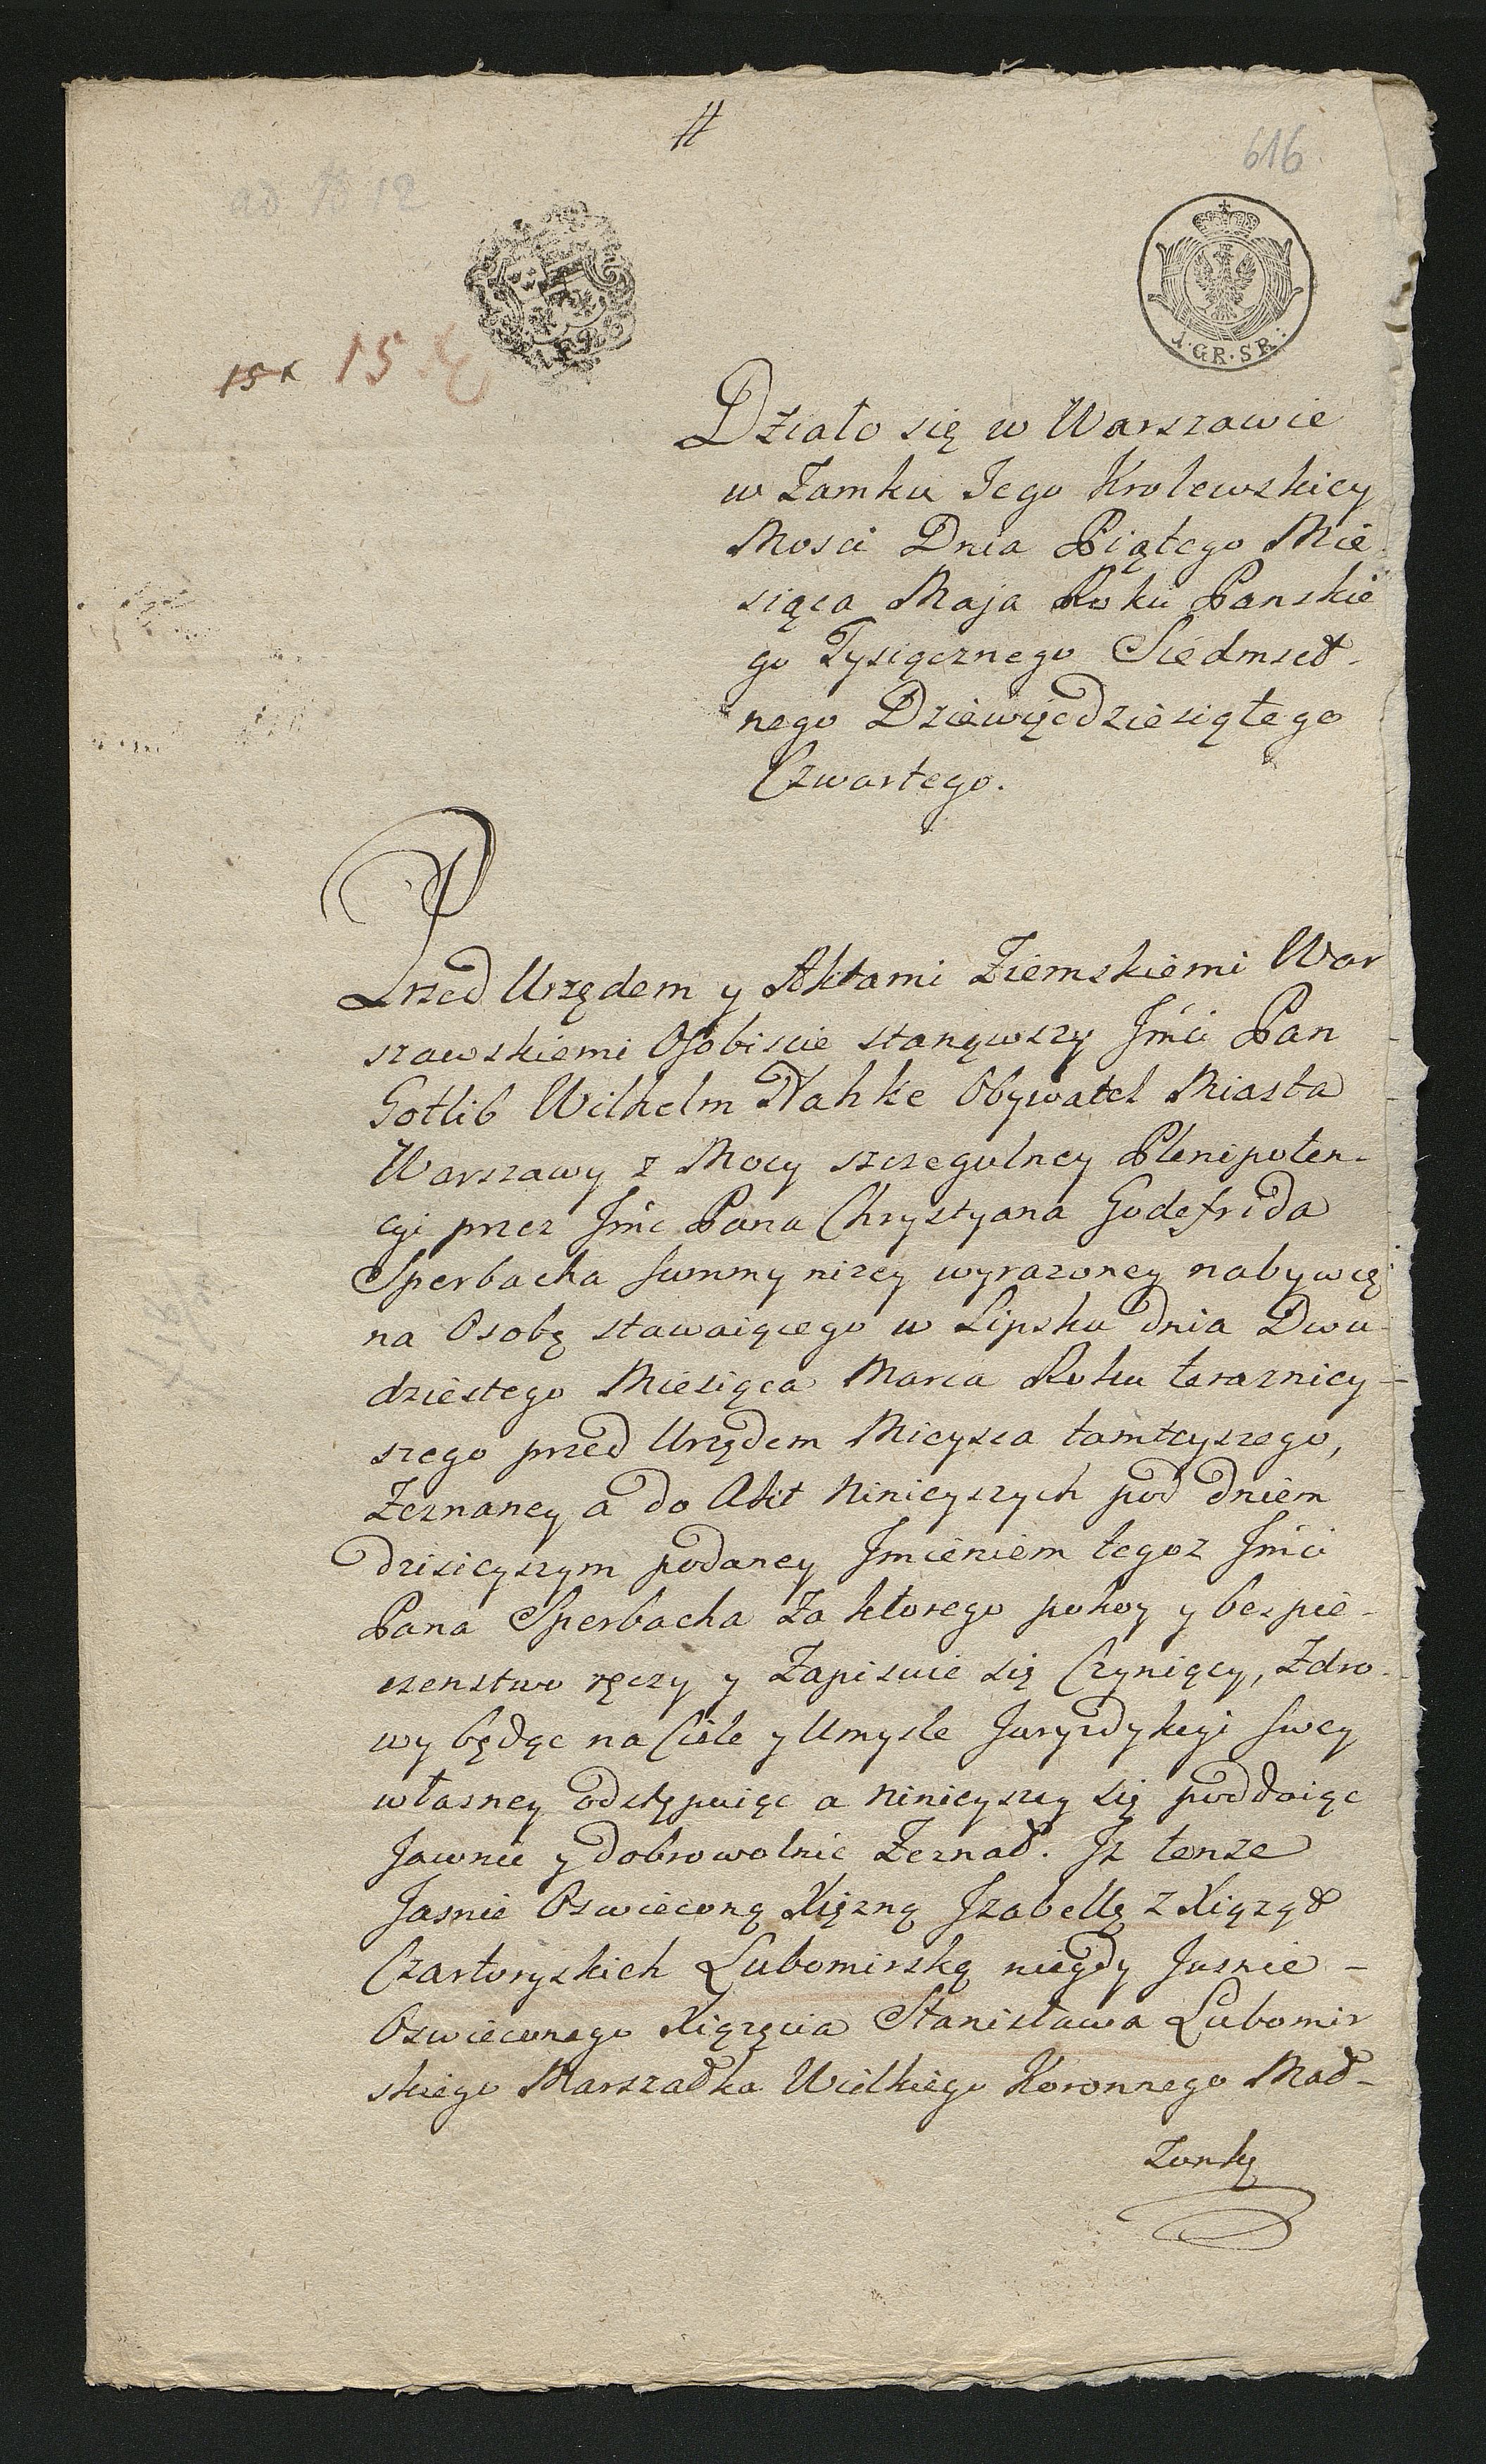 #
616
ad 12
1.GR.SR.
15 x 15
Działo się w Warszawie
w Zamku Jego Krolewskiey
Mosci Dnia Piątego Mie
siąca Maja Roku Panskie
go Tysiącznego Siedmset-
nego Dziewięćdziesiątego
Czwartego.
Przed Urzędem y Aktami Ziemskiemi War
szawskiemi Osobiscie stanąwszy Jmci Pan
Gotlib Wilhelm Nahke Obywatel Miasta
Warszawy z Mocy szczegulney Plenipoten-
cyi przez Jmc Pana Chrystyana Godefrida
Sperbacha Summy nizey wyrazoney nabywcę
na Osobę stawaiącego w Lipsku dnia Dwu
dziestego Miesiąca Marca Roku teraznicy-
szego przed Urzędem Mieysca tamteyszego,
Zeznaney a do Akt Ninieyszych pod dniem
dzisieyszym podaney Jmieniem tegoz Jmci
Pana Sperbacha za ktorego pokoy y bespie-
czenstwo ręczy y Zapisuie się Czyniący, Zdro-
wy będąc na Ciele y Umysle Juryzdykcyi swey
własney odstępuiąc a ninieyszey się poddaiąc
Jawnie y dobrowolnie Zeznał. Jz tenze
Jasnie Oswieconą Xiężną Jzabellę z Xiążąt
Czartoryskich Lubomirską niegdy Jasnie-
Oswieconego Xiążęcia Stanisława Lubomir
skiego Marszałka Wielkiego Koronnego Mał-
zonkę